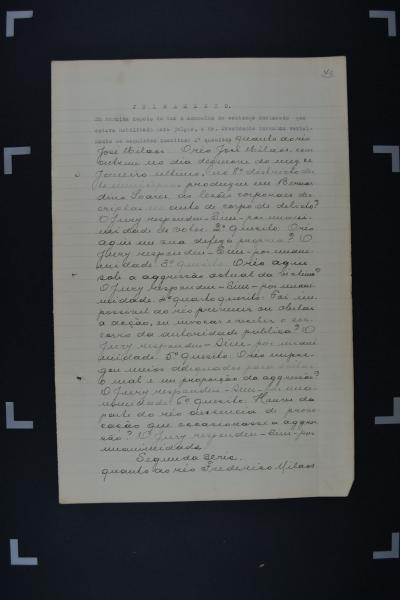 46
JULGAMENTO.
quanto ao réo
José Milaos. O réo José Milaos, com
no dia dezenove do mez de
Janeiro ultimo, no 8º districto de
municipio, produziu em Bernar
dino Soares as lesões corporaes de
scriptas no auto de corpo de delicto?
O Jury respondeu - Sim - por unani-
midade de votos. 2º Quesito. O réo
agiu em sua defeza propria? O
Jury respondeu - Sim - por unani-
midade. 3º Quesito. O réo agiu
sob a aggressão actual da victima?
O Jury respondeu - Sim - por unani-
midade. 4º quarto quesito: Foi im-
possivel ao réo prevenir ou obstar
a acção, ou invocar e receber o soc-
corro da autoridade publica? O
Jury respondeu - Sim - por unani
midade. 5º Quesito. O réo empre-
gou meios adequados para evitar
o mal e em proporção da aggressão?
O Jury respondeu - Sim - por una-
nimidade. 6º Quesito. Houve da
parte do réo ausencia de provo-
cação que occasionasse a aggres-
são? O Jury respondeu - Sim - por
unanimidade.
Segunda serie.
quanto ao réo Frederico Milaos